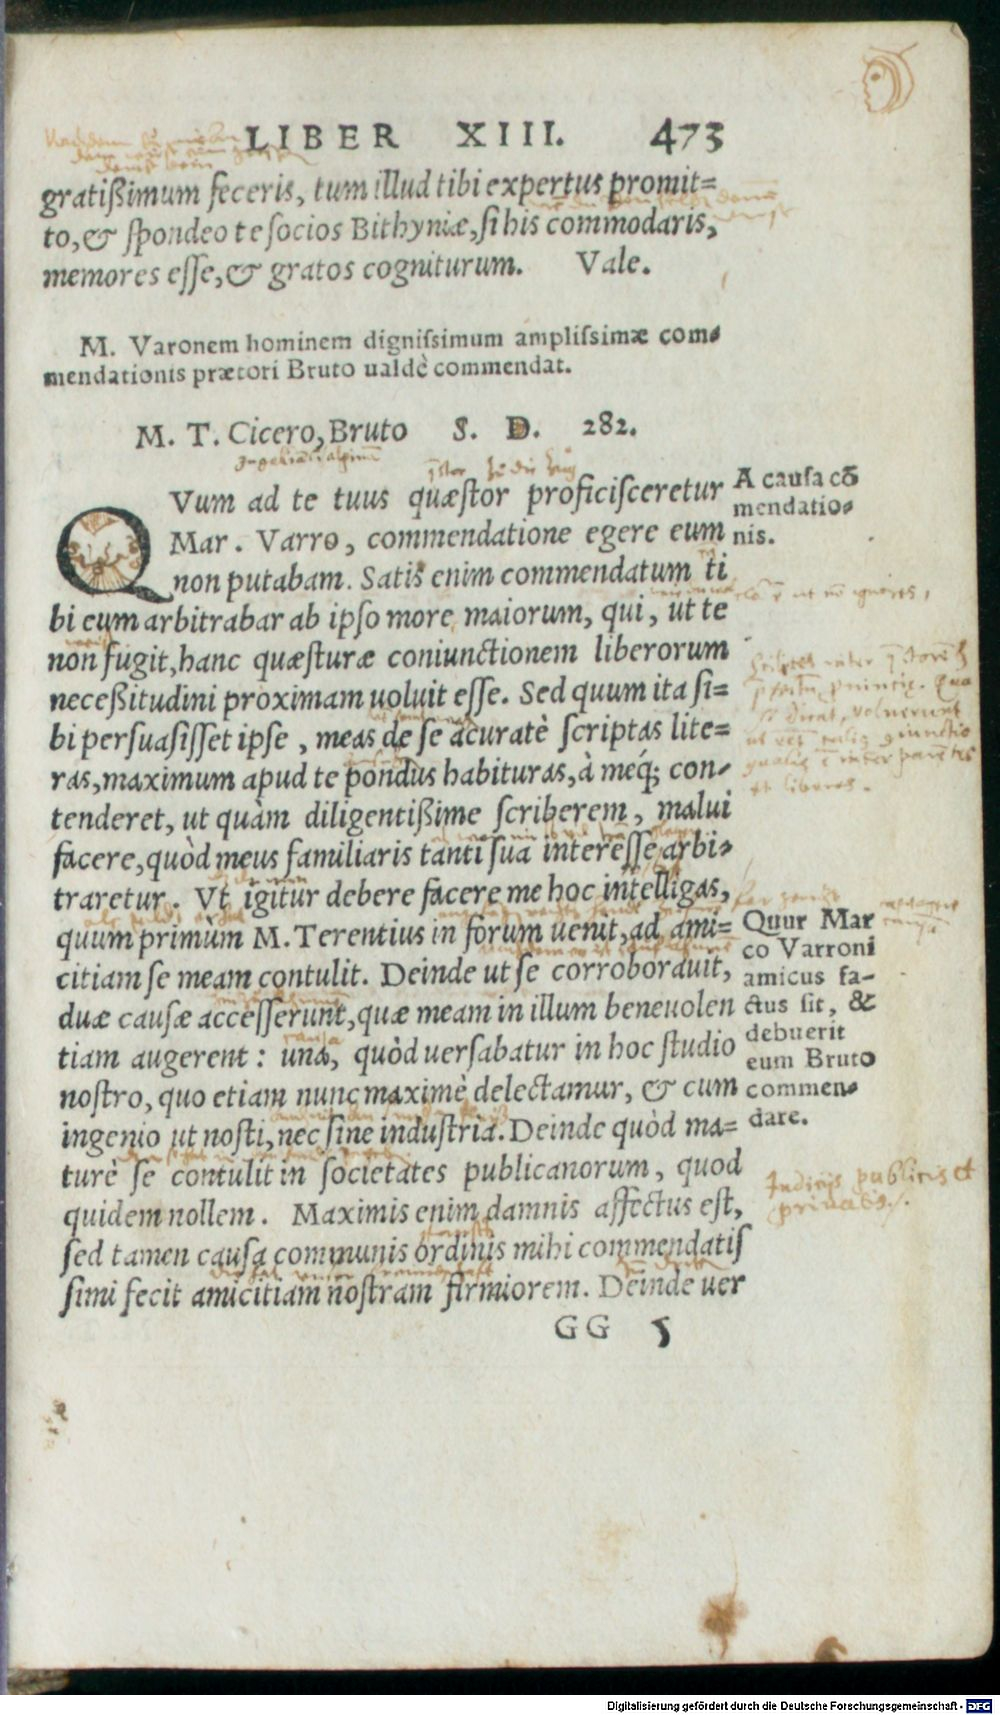 LIBER XIII. 473
gratißimum feceris, tum illud tibi expertus promit=
to, & spondeo te socios Bithyniæ, si his commodaris,
memores esse, & gratos cogniturum. Vale.
M. Varonem hominem dignissimum amplissimæ com-
mendationis prætori Bruto ualdè commendat.
M. T. Cicero, Bruto S. D. 282.
QVum ad te tuus quæstor proficisceretur
Mar. Varro, commendatione egere eum
non putabam. Satis enim commendatum ti
bi eum arbitrabar ab ipso more maiorum, qui, ut te
non fugit, hanc quæsturæ coniunctionem liberorum
neceßitudini proximam uoluit esse. Sed quum ita si=
bi persuasisset ipse, meas de se acuratè scriptas lite=
ras, maximum apud te pondus habituras, à méq; con-
tenderet, ut quàm diligentißime scriberem, malui
facere, quòd meus familiaris tanti sua interesse arbi-
traretur. Vt igitur debere facere me hoc intelligas,
quum primùm M. Terentius in forum uenit, ad ami=
citiam se meam contulit. Deinde ut se corroborauit,
duæ causæ accesserunt, quæ meam in illum beneuolen
tiam augerent: una, quòd uersabatur in hoc studio
nostro, quo etiam nunc maximè delectamur, & cum
ingenio ut nosti, nec sine industria. Deinde quòd ma=
turè se contulit in societates publicanorum, quod
quidem nollem. Maximis enim damnis affectus est,
sed tamen causa communis ordinis mihi commendatis
simi fecit amicitiam nostram firmiorem. Deinde uer
GG 5
A causa cō
mendatio-
nis.
Quur Mar
co Varroni
amicus fa-
ctus sit, &
debuerit
eum Bruto
commen-
dare.
Judicijs publicis et
priuatis
et liberos.
Digitalisierung gefördert durch die Deutsche Forschungsgemeinschaft - DFG